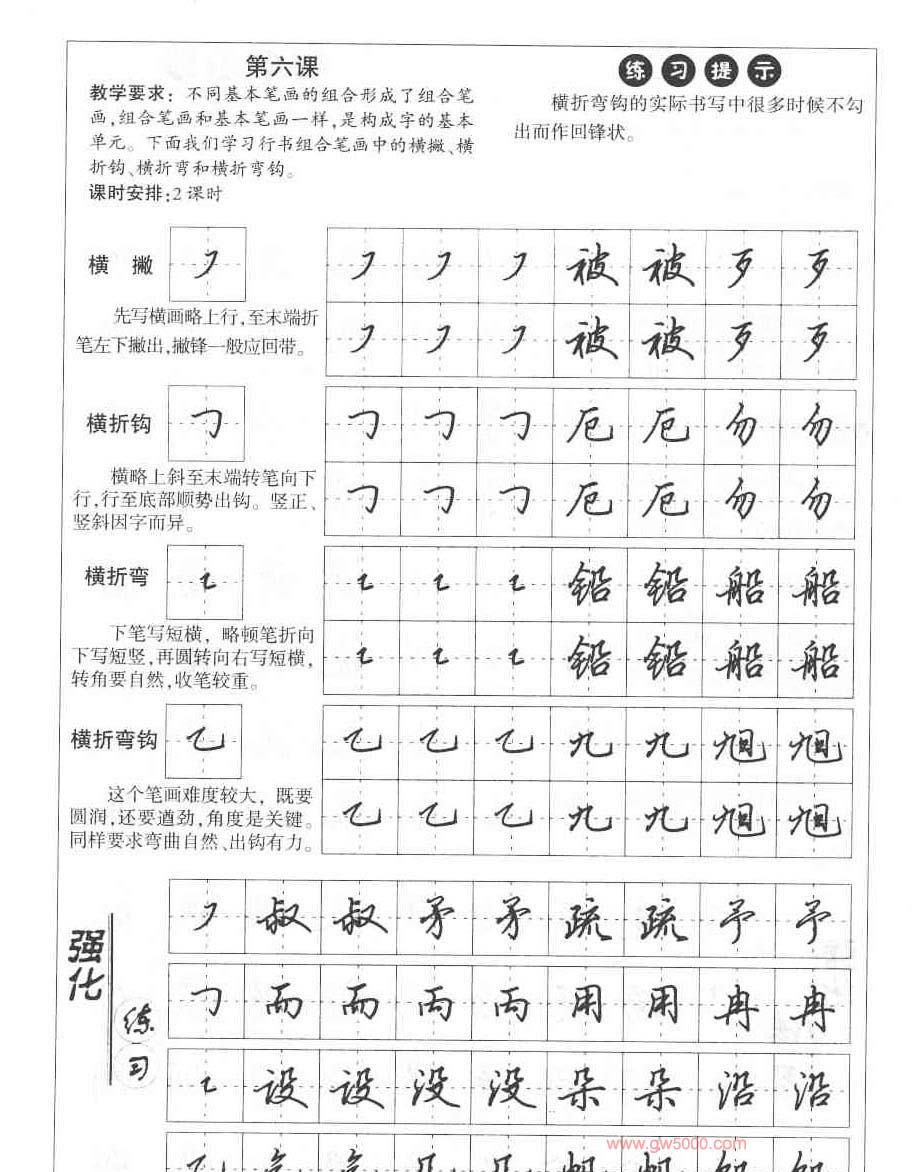 第六课
教学要求：不同基本笔画的组合形成了组合笔
画,组合笔画和基本笔画一样,是构成字的基本
单元。下面我们学习行书组合笔画中的横撇、横
折钩、横折弯和横折弯钩。
课时安排:2课时
练习提示
横折弯钩的实际书写中很多时候不勾
出而作回锋状。
横 撇
先写横画略上行,至末端折
笔左下撇出,撇锋一般应回带。
被 被 歹 歹
被 被 歹 歹
横折钩
横略上斜至末端转笔向下
行,行至底部顺势出钩。竖正、
竖斜因字而异。
厄 厄 勿 勿
厄 厄 勿 勿
横折弯
下笔写短横，略顿笔折向
下写短竖,再圆转向右写短横,
转角要自然,收笔较重。
铅 铅 船 船
铅 铅 船 船
横折弯钩
这个笔画难度较大，既要
圆润,还要遒劲,角度是关键。
同样要求弯曲自然、出钩有力。
乙 乙 乙 九 九 旭 旭
乙 乙 乙 九 九 旭 旭
强化
练习
叔 叔 矛 矛 疏 疏 予 予
而 而 丙 丙 用 用 冉 冉
设 设 没 没 朵 朵 沿 沿
www.gw5000.com